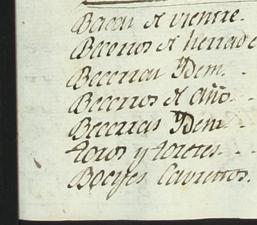 Bacas de vientre.
Becerros de herrade
Becerras Ydem.
Becerros de año.
Becerras Ydem
toros y toretes.
Bueyes Caurinos.